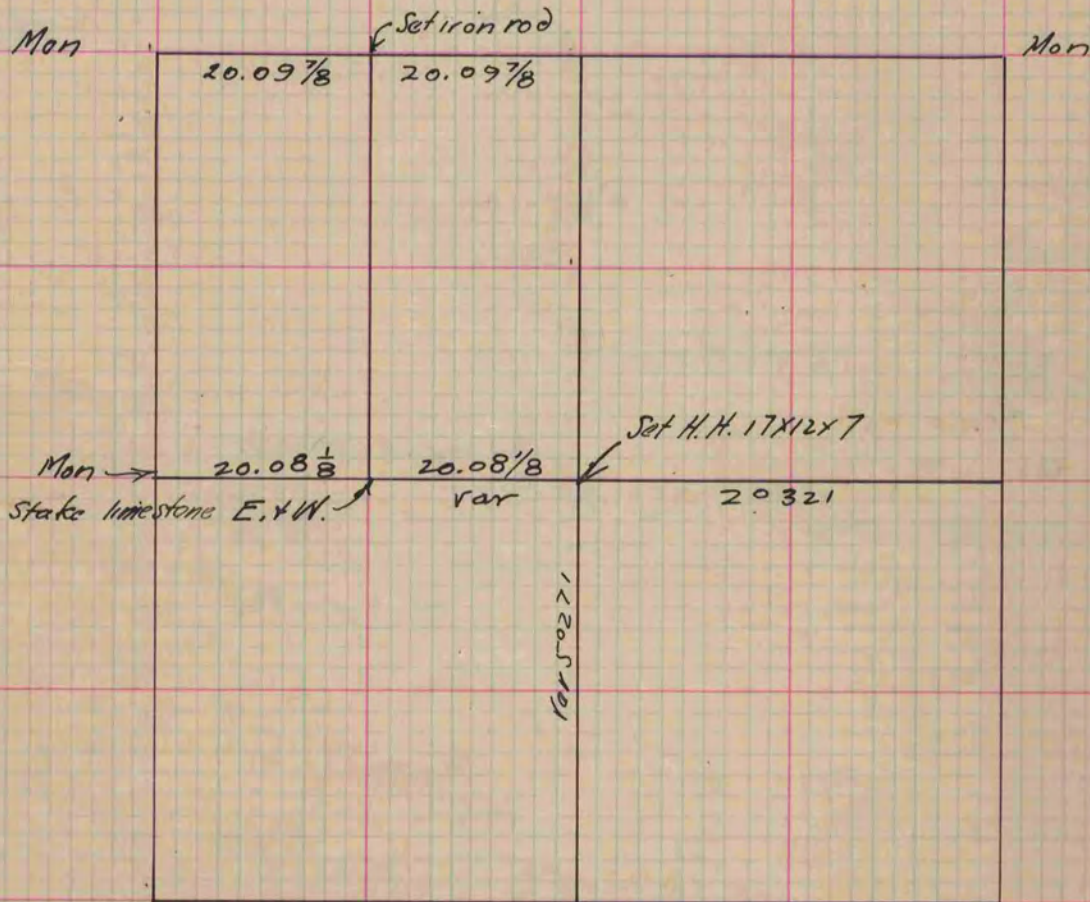 Set iron rod
Mon
Mon
20.09 7/8
20.09 7/8
Set H.H. 17x12x7
Mon
20.08 1/8
20.08 1/8
Stake limestone E. & W.
var
20321
Var 5°27'